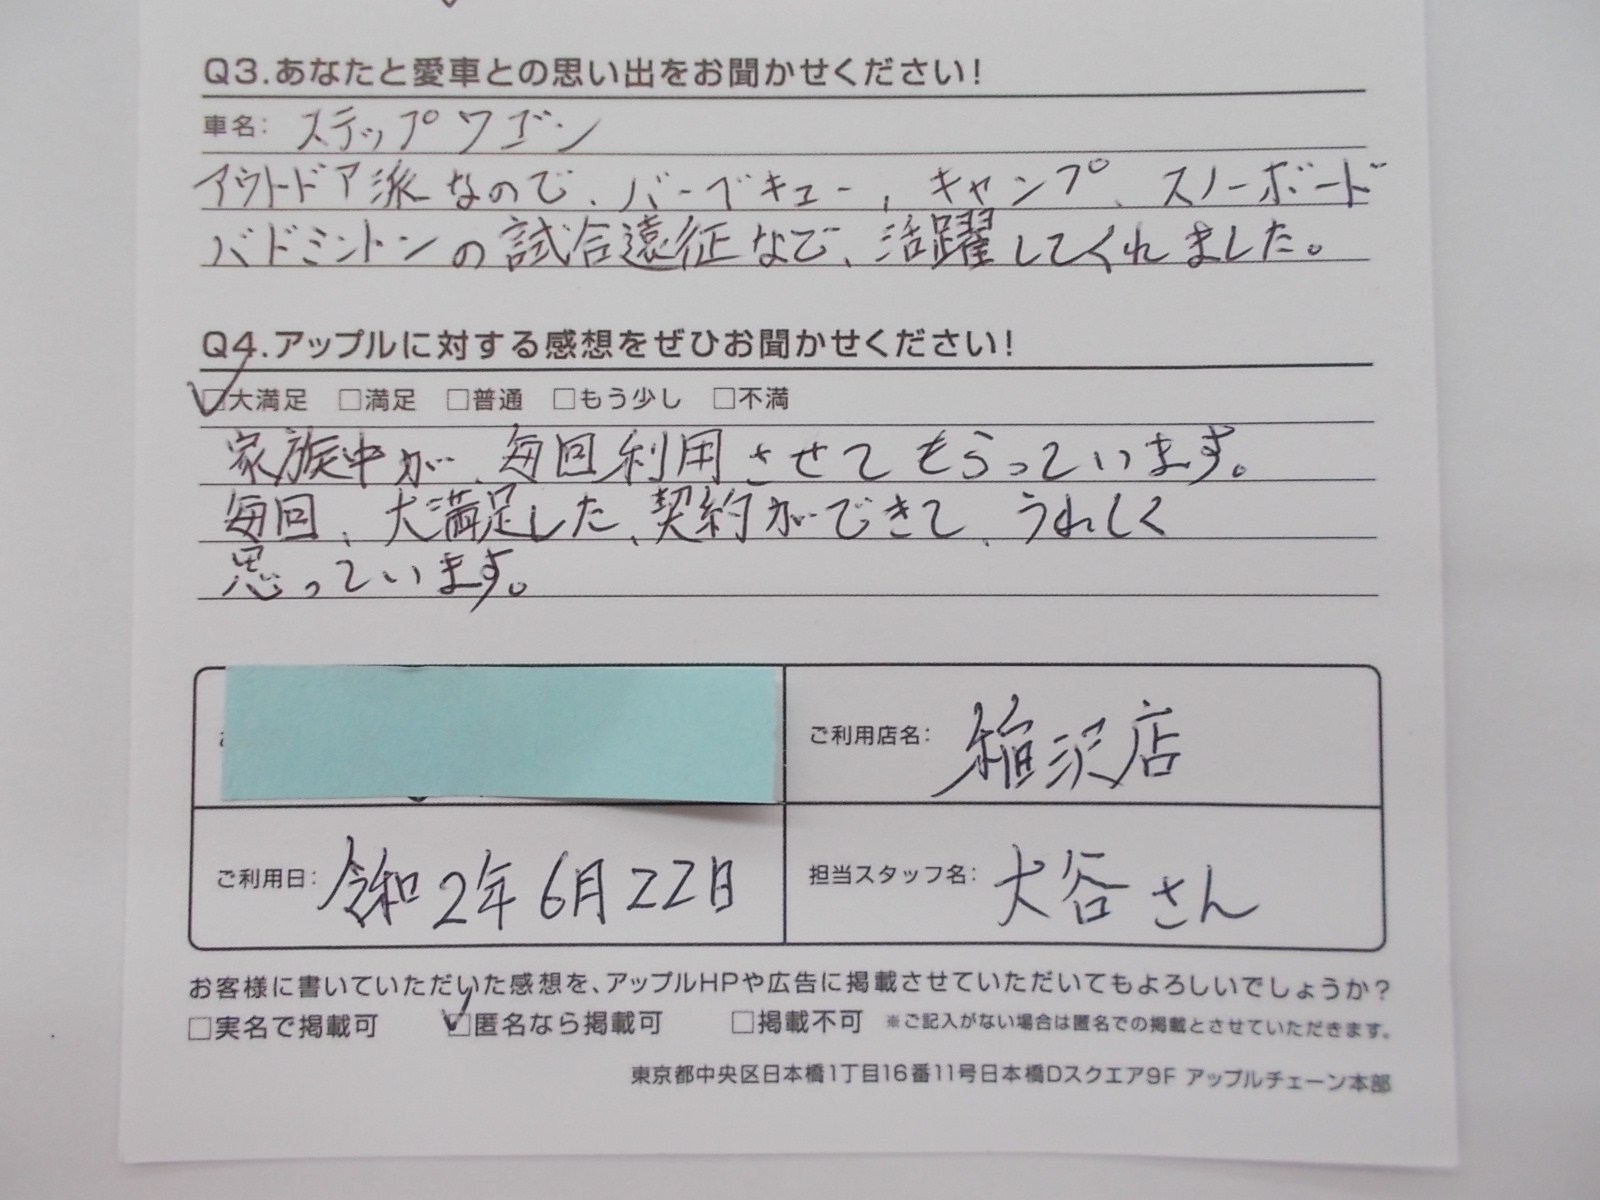 Q3.あなたと愛車との思い出をお聞かせください!
車名: ステップワゴン
アウトドア派なので、バーベキュー、キャンプ、スノーボード
バドミントンの試合遠征などで、活躍してくれました。
Q4.アップルに対する感想をぜひお聞かせください!
☑大満足 □満足 □普通 □もう少し □不満
家族中が、毎回利用させてもらっています。
毎回、大満足した、契約ができて、うれしく
思っています。
ご利用店名: 稲沢店
ご利用日: 令和2年6月22日
担当スタッフ名: 大谷さん
お客様に書いていただいた感想を、アップルHPや広告に掲載させていただいてもよろしいでしょうか?
□実名で掲載可 ☑匿名なら掲載可 □掲載不可 ※ご記入がない場合は匿名での掲載とさせていただきます。
東京都中央区日本橋1丁目16番11号日本橋Dスクエア9F アップルチェーン本部